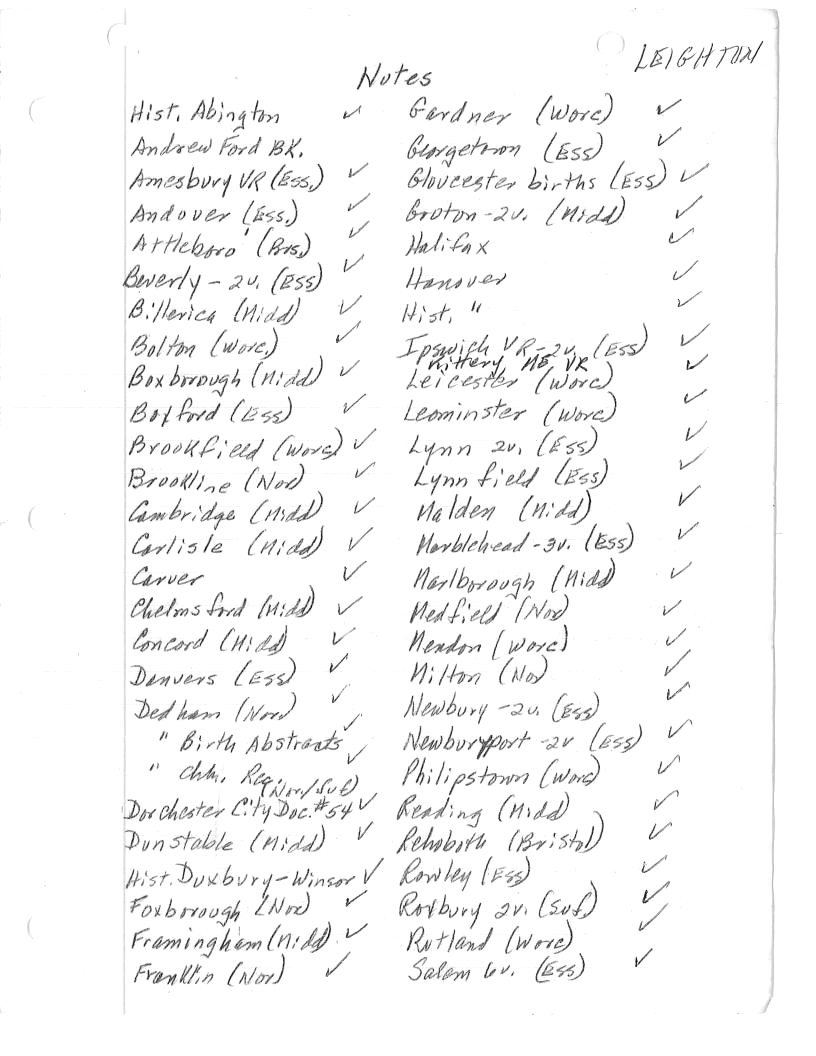 LEIGHTON
Notes
Hist. Abington ✓
Andrew Ford BK.
Amesbury VR (Ess.) ✓
Andover (Ess.) ✓
Attleboro' (Brs.) ✓
Beverly - 2v. (Ess) ✓
Billerica (Midd) ✓
Bolton (Worc.) ✓
Boxborough (Midd) ✓
Boxford (Ess) ✓
Brookfield (Worc) ✓
Brookline (Nor) ✓
Cambridge (Midd) ✓
Carlisle (Midd) ✓
Carver ✓
Chelmsford (Midd) ✓
Concord (Midd) ✓
Danvers (Ess) ✓
Dedham (Nor) ✓
" Birth Abstracts ✓
" Chh. Rec. ✓
(Nor/Suf)
Dorchester City Doc. #54 ✓
Dunstable (Midd) ✓
Hist. Duxbury - Winsor ✓
Foxborough (Nor) ✓
Framingham (Midd) ✓
Franklin (Nor) ✓
Gardner (Worc) ✓
Georgetown (Ess) ✓
Gloucester births (Ess) ✓
Groton - 2v. (Midd) ✓
Halifax ✓
Hanover ✓
Hist. " ✓
Ipswich VR - 2v. (Ess) ✓
Kittery, ME VR
Leicester (Worc) ✓
Leominster (Worc) ✓
Lynn 2v. (Ess) ✓
Lynnfield (Ess) ✓
Malden (Midd) ✓
Marblehead - 3v. (Ess) ✓
Marlborough (Midd) ✓
Medfield (Nor) ✓
Mendon (Worc) ✓
Milton (Nor) ✓
Newbury - 2v. (Ess) ✓
Newburyport - 2v (Ess) ✓
Philipstown (Worc) ✓
Reading (Midd) ✓
Rehoboth (Bristol) ✓
Rowley (Ess) ✓
Roxbury 2v. (Suf) ✓
Rutland (Worc) ✓
Salem 6v. (Ess) ✓